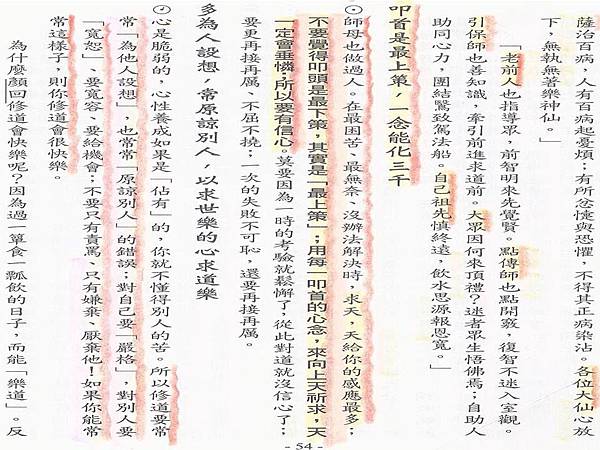 薩治百病，人有百病起憂煩；有所忿懥與恐懼，不得其正病染沾。各位大仙心放
下，無執無著樂神仙。」
「老前人也指導眾，前智明來先覺賢。點傳師也點開竅，復智不迷入室觀。
引保師也善知識，牽引前進求道前。大眾因何來頂禮？迷者眾生悟佛焉；自助人
助同心力，團結鸞致駕法船。自己祖先慎終遠，飲水思源報恩寬。」
叩首是最上策，一念能化三千
⊙師母也做過人。在最困苦、最無奈、沒辦法解決時，求天，天給你的感應最多；
不要覺得叩頭是最下策，其實是「最上策」；用每一叩首的心念，來向上天祈求，天
一定會垂憐；所以要有信心。莫要因為一時的考驗就鬆懈了；從此對道就沒信心了；
要更再接再厲、不屈不撓；一次的失敗不可恥，還要再接再厲。
多為人設想，常原諒別人，以求世樂的心求道樂
⊙心是脆弱的，心性養成如果是「佔有」的，你就不懂得別人的苦。所以修道要常
常「為他人設想」，也常常「原諒別人」的錯誤；對自己要「嚴格」，對別人要
「寬恕」、要寬容、要給機會；不要只有責罵、只有嫌棄、厭棄他！如果你能常
常這樣子，則你修道會很快樂。
為什麼顏回修道會快樂呢？因為過一簞食一瓢飲的日子，而能「樂道」。反
- 54 -